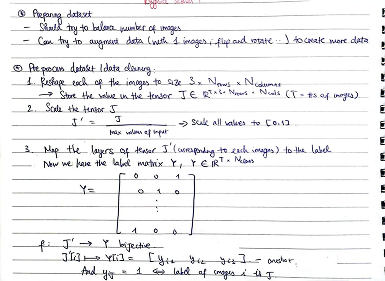 Preparing dataset
- Should try to balance number of images
- Can try to augment data (with 1 images, flip and rotate ..) to create more data
Preprocess dataset / data cleaning:
1. Reshape each of the images to size 3 × Nrows × Ncolumns
→ Store the value in the tensor J ∈ R^T×3×Nrows×Ncols (T = #s of images)
2. Scale the tensor J
J' = J / max values of input → Scale all values to [0,1]
3. Map the layers of tensor J' (corresponding to each images) to the label
Now we have the label matrix Y, Y ∈ R^T×
Y =
0 0 1
0 1 0
⋮
1 0 0
f: J' → Y bijective
J'[i] ↦ Y[i] = [ yi1 yi2 yi3 ] =
And yij = 1 ⇔ label of images i is J